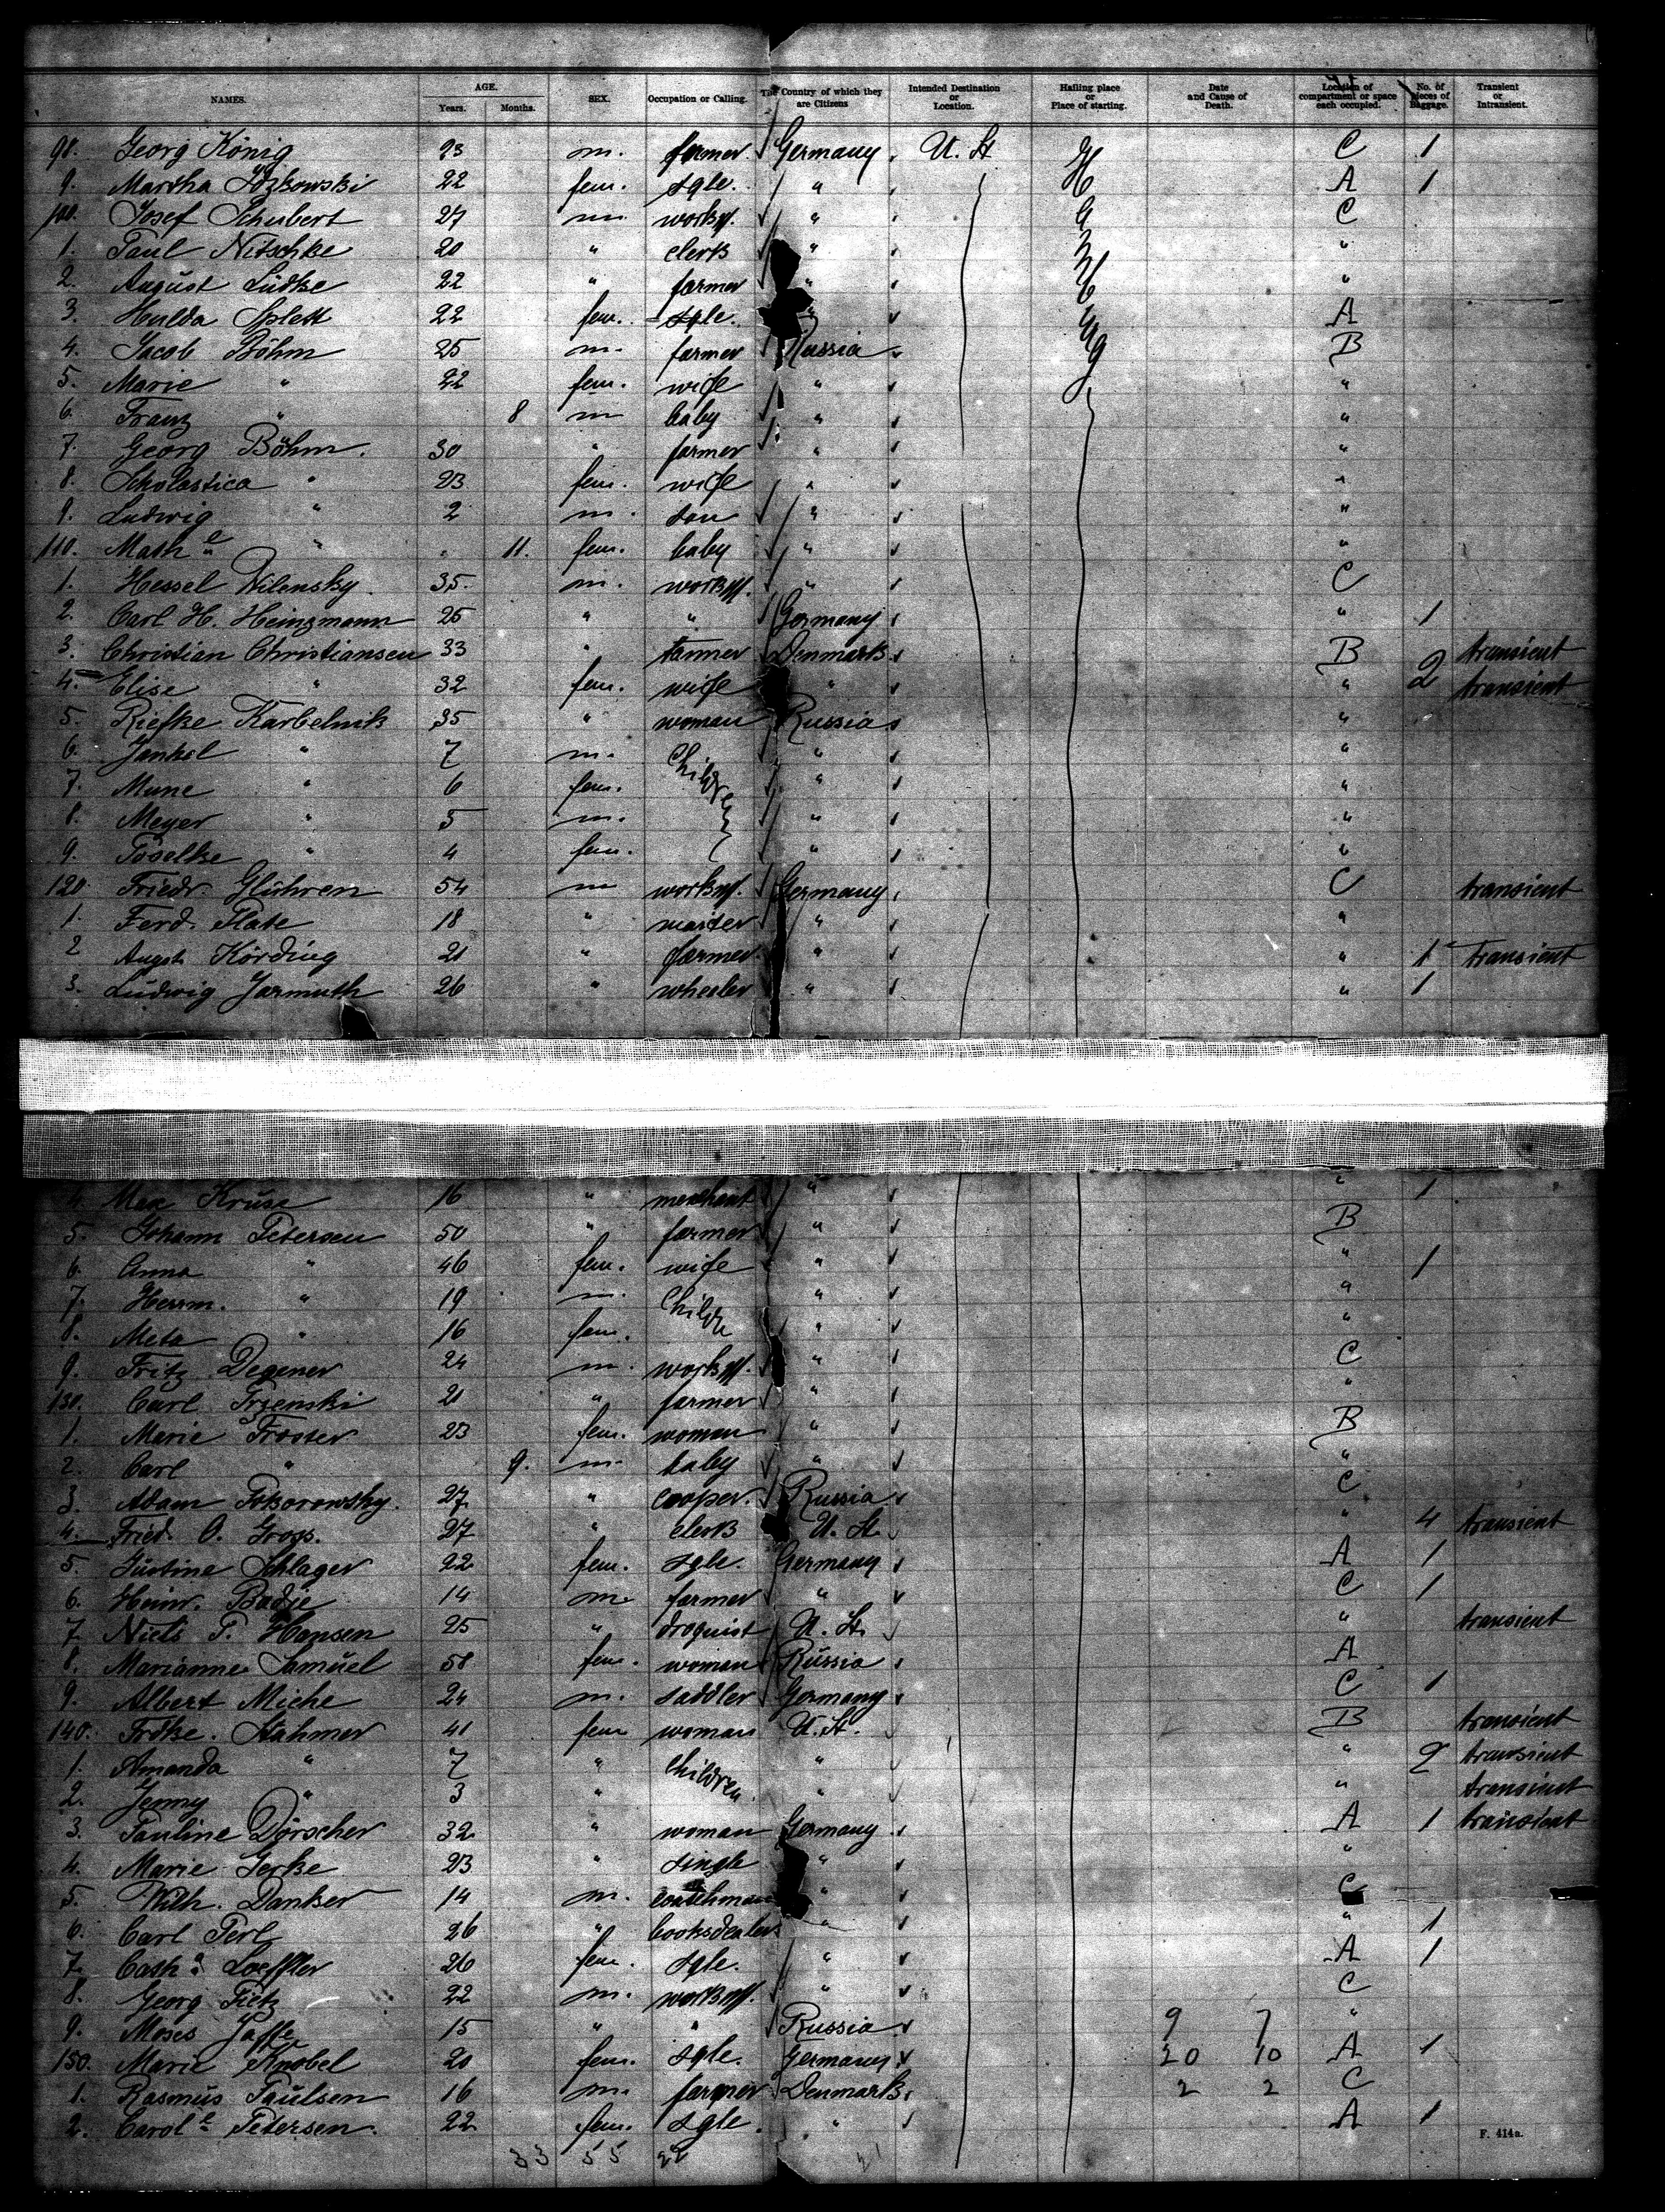 NAMES. AGE. Years. Months. SEX. Occupation or Calling. The Country of which they are Citizens Intended Destination or Location. Hailing place or Place of starting. Date and Cause of Death. Location of compartment or space each occupied. No. of pieces of Baggage. Transient or Intransient.
98. Georg König 23 m. farmer Germany U. St. C 1
9. Martha 22 fem. sgle. " A 1
100. Josef Schubert 27 m. workm. " C
1. Paul Nitschke 20 " clerk " "
2. August Lüdke 22 " farmer " "
3. Hulda Splett 22 fem. sgle. " A
4. Jacob Böhm 25 m. farmer Russia B
5. Marie " 22 fem. wife " "
6. Franz " 8 m baby " "
7. Georg Böhm. 30 " farmer " "
8. Scholastica " 23 fem. wife " "
9. Ludwig " 2 m. son " "
110. Math e " 11. fem. baby " "
1. Hessel Wilensky 35. m. workm. " C
2. Carl H. Heinzmann 25 " " Germany " 1
3. Christian Christiansen 33 " farmer Denmark B transient
4. Elise " 32 fem. wife " " 2 transient
5. Riefke Karbelnik 35 " woman Russia "
6. Jankel " 7 m. Children " "
7. Mune " 6 fem. " "
8. Meyer " 5 m. " "
9. " 4 fem. " "
120. Friedr. Glühren 54 m workm. Germany C transient
1. Ferd. Plate 18 " " "
2 Augst. Körding 21 " farmer " " 1 transient
3. Ludwig Jarmuth 26 " wheeler " " 1
4. Max Kruse 16 " merchant " " 1
5. Johann Petersen 50 " farmer " B
6. Anna " 46 fem. wife " " 1
7. Herrm. " 19 m. Childr " "
8. Meta " 16 fem. " "
9. Fritz Degener 24 m. workm. " C
130. Carl 21 " farmer " "
1. Marie Froster 23 fem. woman " B
2. Carl " 9. m. baby " "
3. Adam Pokorowsky. 27 " cooper. Russia C
4. Fried. O. Gross. 27 " clerk U. St. " 4 transient
5. Justine Schlager 22 fem. sgle. Germany A 1
6. Heinr. Badje 14 m. farmer " C 1
7. Niels P. Hansen 25 " droguist U. St. " transient
8. Marianne Samuel 58 fem. woman Russia A
9. Albert Miche 24 m. saddler Germany C 1
140. Frdke. Hahmer 41 fem woman U. St. B transient
1. Amanda " 7 " Children " " 2 transient
2. Jenny " 3 " " " transient
3. Pauline Dörscher 32 " woman Germany A 1 transient
4. Marie Gerke 23 " single " "
5. Wilh. Danker 14 m. coachman " C
6. Carl Perl 26 " booksdealer " " 1
7. Cath a Loeffler 26 fem. sgle. " A 1
8. Georg Tietz 22 m. workm. " C
9. Moses Jaffe 15 " " Russia 9 7 "
150. Marie Knobel 20 fem. sgle. Germany 20 10 A 1
1. Rasmus Paulsen 16 m. farmer Denmark 2 2 C
2. Carol e Petersen. 22 fem. sgle. " A 1
33 55 22
F. 414a.